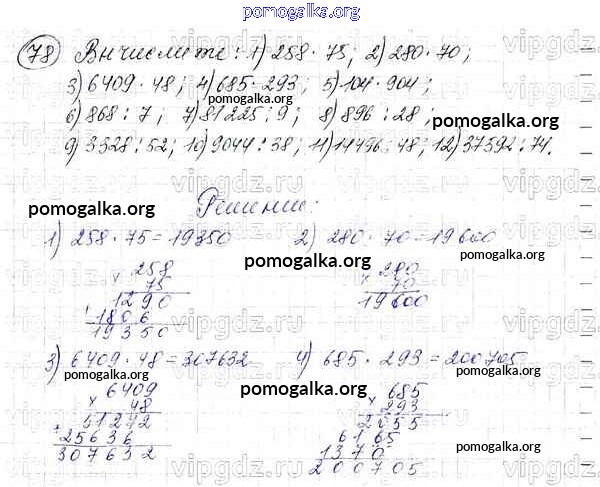 pomogalka.org
78 Вычислите: 1) 258 · 75; 2) 280 · 70;
3) 6409 · 48; 4) 685 · 293; 5) 104 · 904;
pomogalka.org
6) 868 : 7; 7) 81225 : 9; 8) 896 : 28;
pomogalka.org
9) 3328 : 52; 10) 9044 : 38; 11) 14496 : 48; 12) 37592 : 74.
vipgdz.ru vipgdz.ru vipgdz.ru
Решение:
pomogalka.org
pomogalka.org
1) 258 · 75 = 19350 2) 280 · 70 = 19600
pomogalka.org
× 258 × 280
75 70
1290 19600
+ 1806
19350
vipgdz.ru vipgdz.ru vipgdz.ru
3) 6409 · 48 = 307632 4) 685 · 293 = 200705
pomogalka.org pomogalka.org
pomogalka.org
× 6409 × 685
48 293
51272 2055
+ 25636 6165
307632 1370
200705
pomogalka.org pomogalka.org
vipgdz.ru vipgdz.ru vipgdz.ru